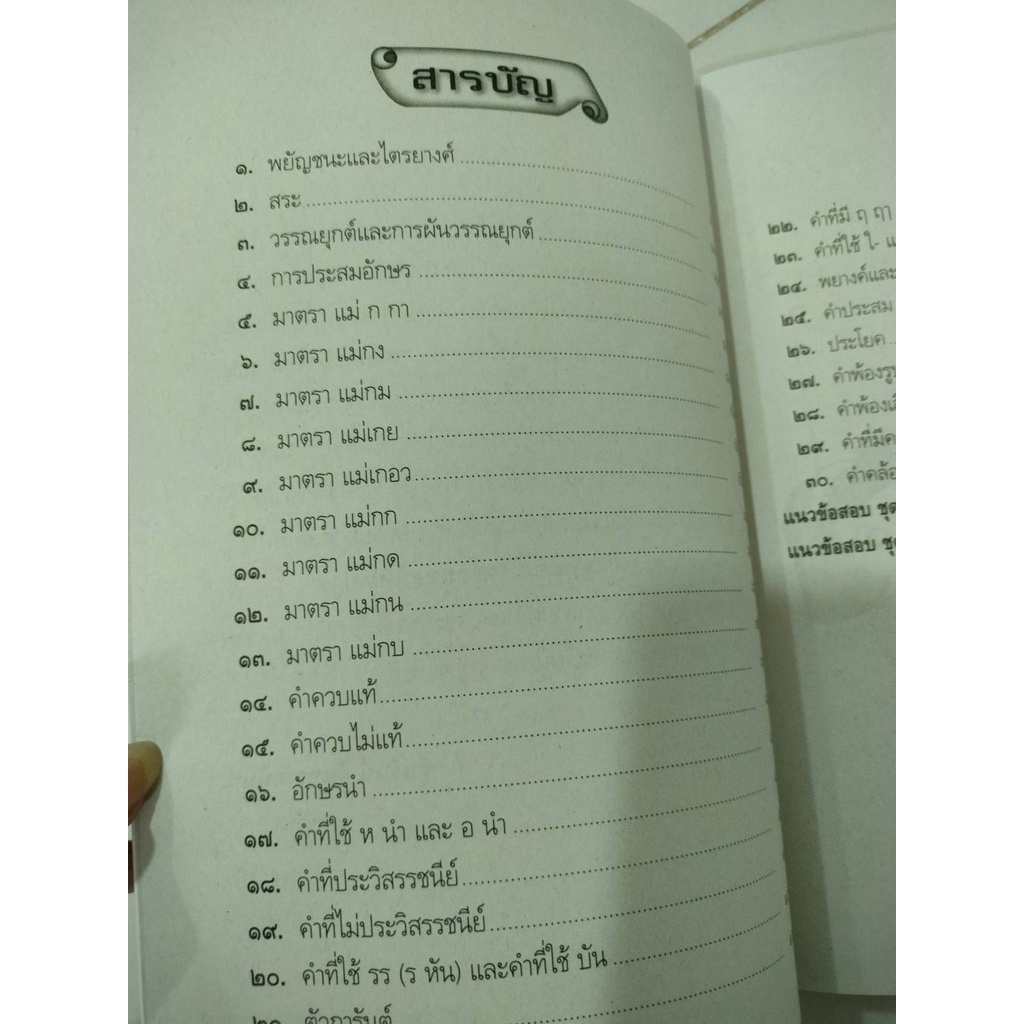 สารบัญ
๑. พยัญชนะและไตรยางศ์
๒. สระ
๓. วรรณยุกต์และการผันวรรณยุกต์
๔. การประสมอักษร
๕. มาตรา แม่ ก กา
๖. มาตรา แม่กง
๗. มาตรา แม่กม
๘. มาตรา แม่เกย
๙. มาตรา แม่เกอว
๑๐. มาตรา แม่กก
๑๑. มาตรา แม่กด
๑๒. มาตรา แม่กน
๑๓. มาตรา แม่กบ
๑๔. คำควบแท้
๑๕. คำควบไม่แท้
๑๖. อักษรนำ
๑๗. คำที่ใช้ ห นำ และ อ นำ
๑๘. คำที่ประวิสรรชนีย์
๑๙. คำที่ไม่ประวิสรรชนีย์
๒๐. คำที่ใช้ รร (ร หัน) และคำที่ใช้ บัน
๒๑. ตัวการันต์
๒๒. คำที่มี ฤ ฤๅ
๒๓. คำที่ใช้ ใ-
๒๔. พยางค์และ
๒๕. คำประสม
๒๖. ประโยค
๒๗. คำพ้องรูป
๒๘. คำพ้อง
๒๙. คำที่มี
๓๐. คำคล้อ
แนวข้อสอบ ชุด
แนวข้อสอบ ชุด